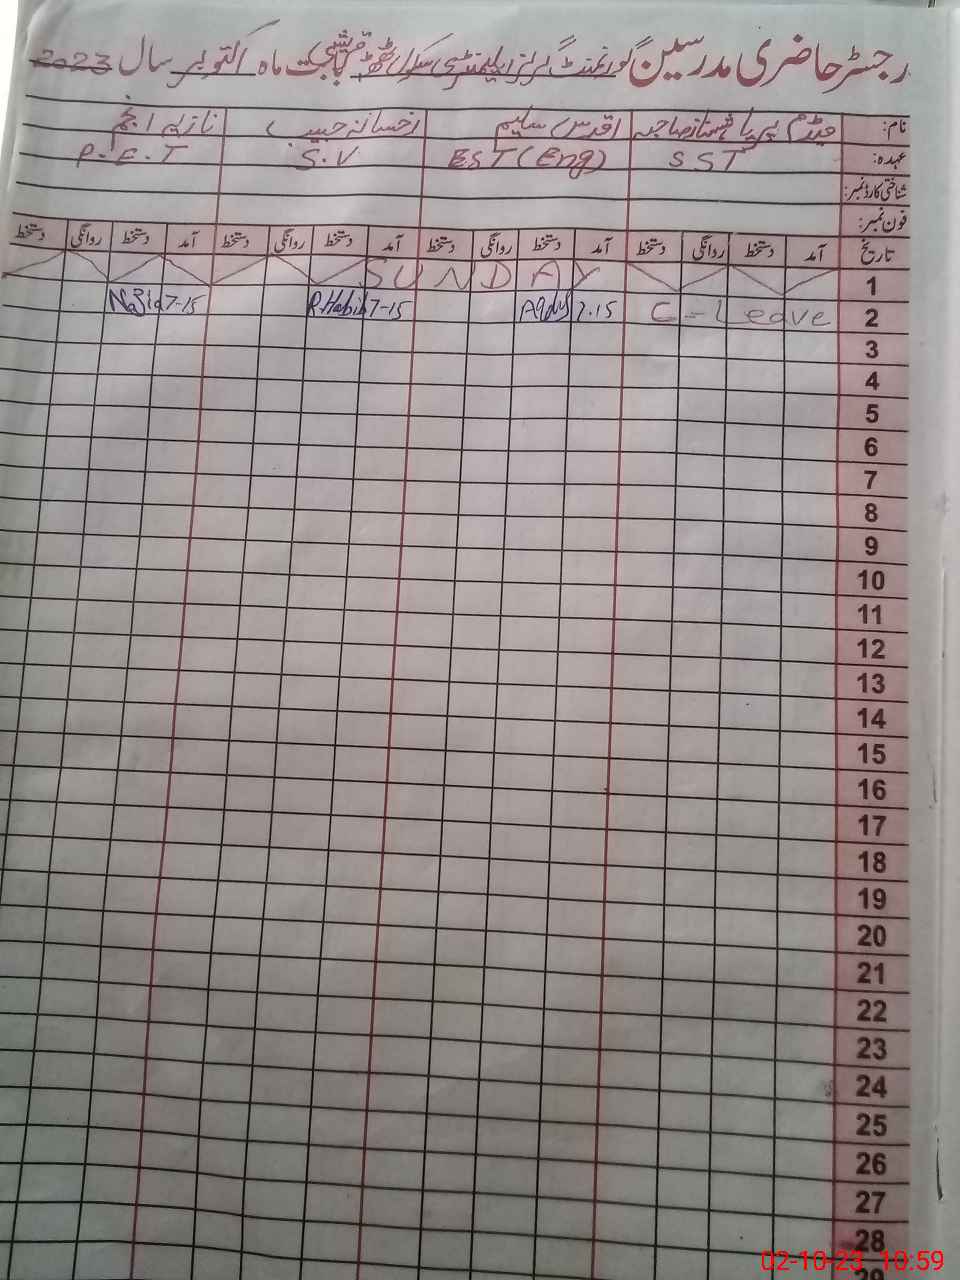 رجسٹر حاضری مدرسین گورنمنٹ گرلز ایلیمنٹری سکول ٹھٹھہ بابت ماہ اکتوبر سال 2023
نام: میڈم صاحبہ اقدس سلیم رخسانہ حبیب نازیہ انجم
عہدہ: SST EST (Eng) S.V P.E.T
شناختی کارڈ نمبر:
فون نمبر:
تاریخ آمد دستخط روانگی دستخط آمد دستخط روانگی دستخط آمد دستخط روانگی دستخط آمد دستخط روانگی دستخط
1 SUNDAY
2 C-Leave 7.15 Aqdus 7-15 R.Habib 7-15 Nazia
3
4
5
6
7
8
9
10
11
12
13
14
15
16
17
18
19
20
21
22
23
24
25
26
27
28
29
02-10-23 10:59